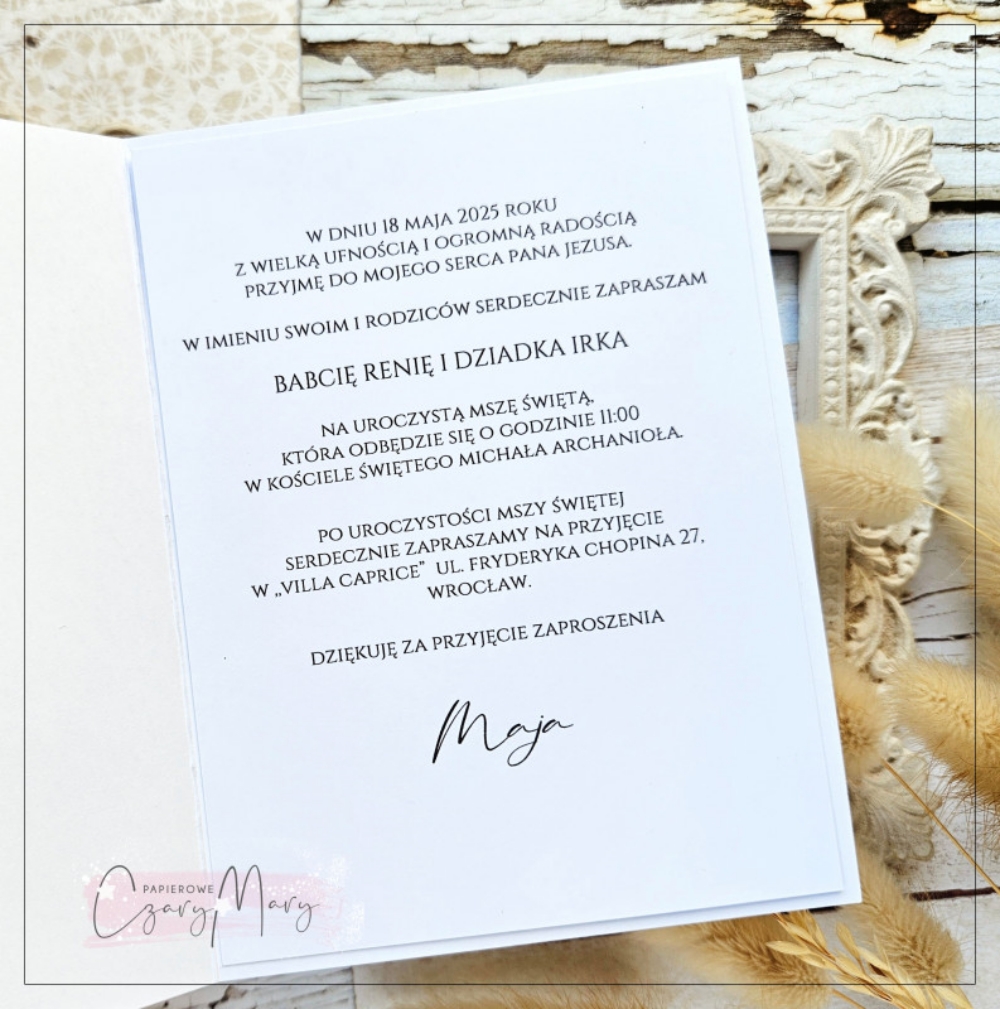 W DNIU 18 MAJA 2025 ROKU
Z WIELKĄ UFNOŚCIĄ I OGROMNĄ RADOŚCIĄ
PRZYJMĘ DO MOJEGO SERCA PANA JEZUSA.
W IMIENIU SWOIM I RODZICÓW SERDECZNIE ZAPRASZAM
BABCIĘ RENIĘ I DZIADKA IRKA
NA UROCZYSTĄ MSZĘ ŚWIĘTĄ,
KTÓRA ODBĘDZIE SIĘ O GODZINIE 11:00
W KOŚCIELE ŚWIĘTEGO MICHAŁA ARCHANIOŁA.
PO UROCZYSTOŚCI MSZY ŚWIĘTEJ
SERDECZNIE ZAPRASZAMY NA PRZYJĘCIE
W „VILLA CAPRICE” UL. FRYDERYKA CHOPINA 27,
WROCŁAW.
DZIĘKUJĘ ZA PRZYJĘCIE ZAPROSZENIA
Maja
PAPIEROWE
Czary Mary